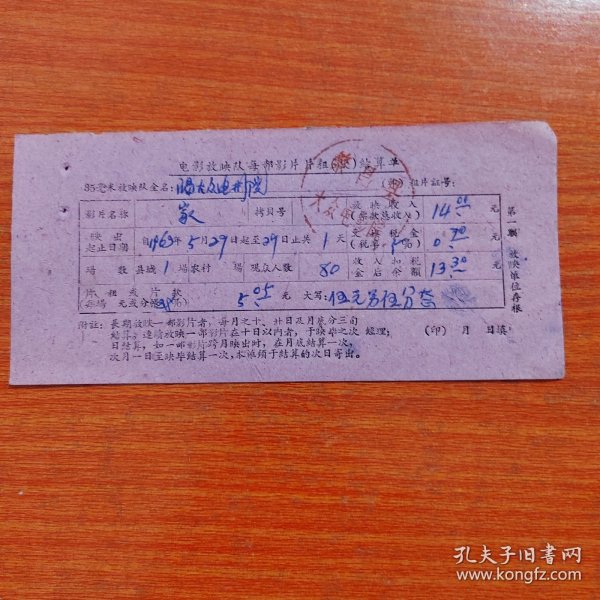 电影放映队每部影片片租( )结算单
35毫米放映队全名: 电影院 租片证号:
影片名称 家 拷贝号 放映收入(票款总收入) 14 00 元
映出起止日期 自1963年5月29日起至29日止共1天 交纳税金(税率5%) 0.70 元
场数 县城1场农村 场 观众人数 80 收入扣税金后余额 13.30 元
片租或片款 (每场 元或分帐38%) 5 05 元 大写: 伍元另伍分
第一联 放映单位存根
附注: 长期放映一部影片者,每月之十、廿日及月底分三旬
结算;连续放映一部影片在十日以内者,于映毕之次 经理: (印) 月 日填
日结算,如一部影片跨月映出时,在月底结算一次,
次月一日至映毕结算一次,本联须于结算的次日寄出。
孔夫子旧书网
www.kongfz.com